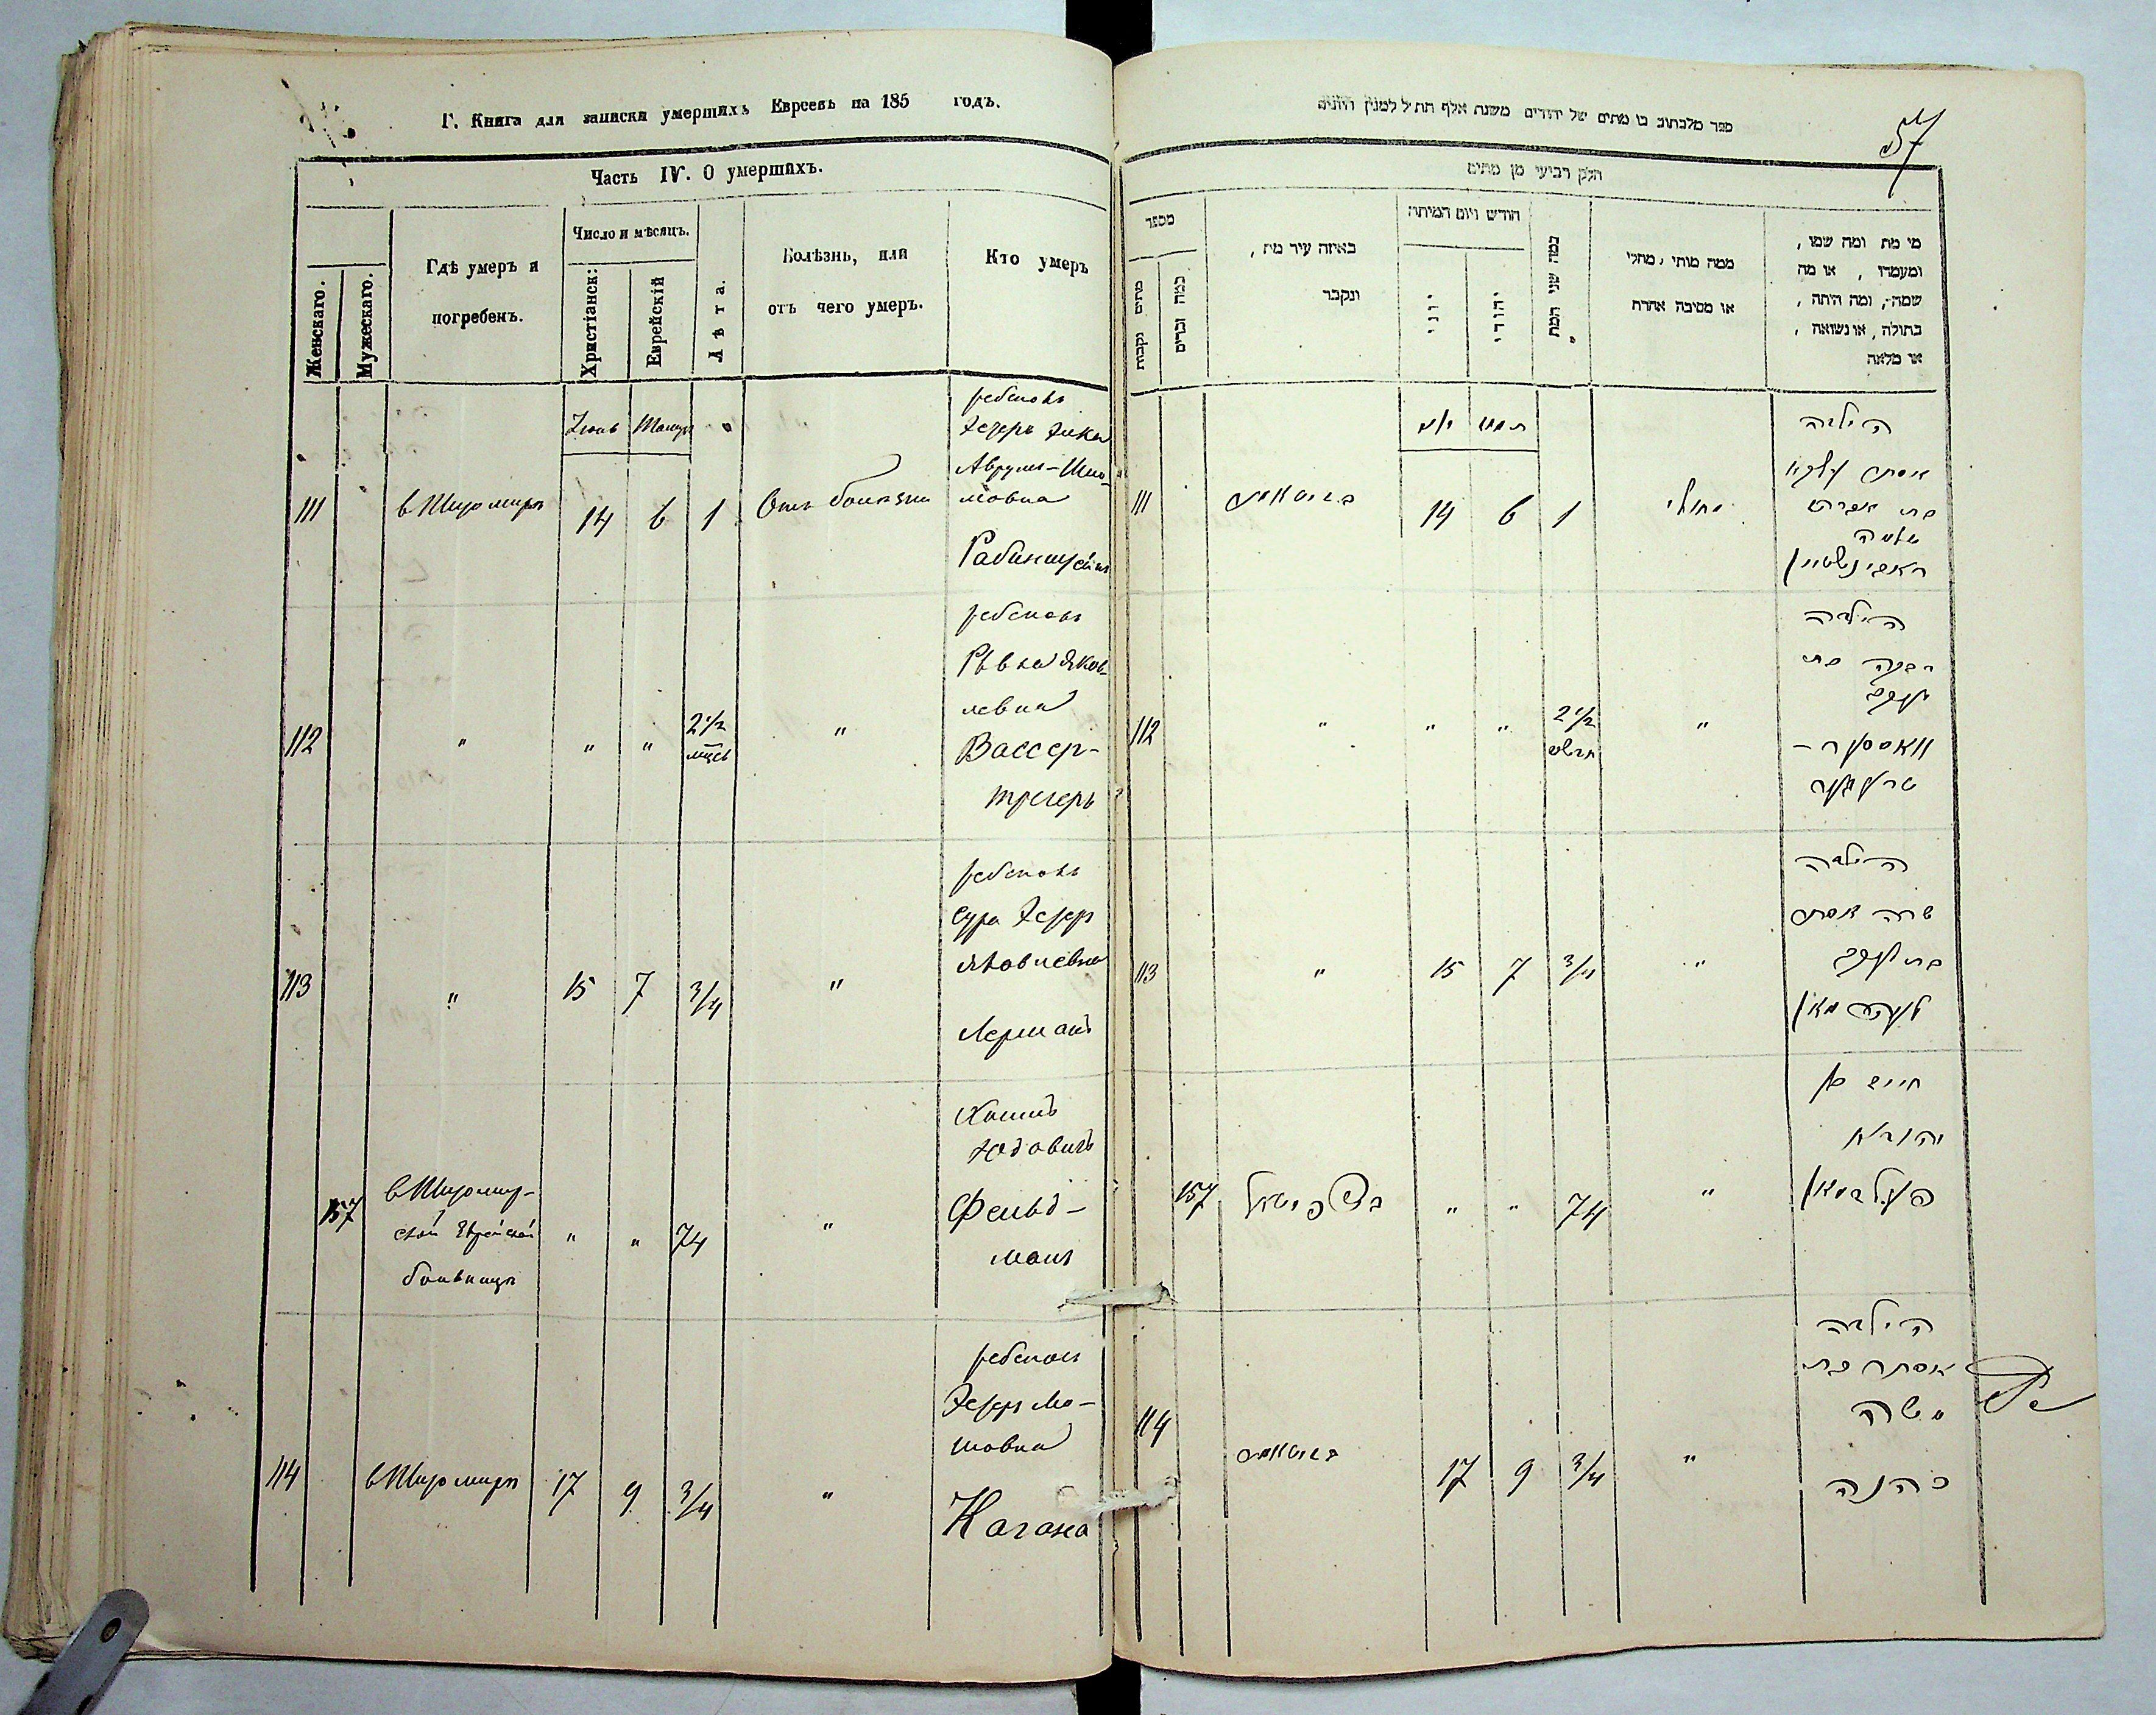 Г. Книга для записки умершихъ Евреевъ на 185 годъ.
Часть IV. О умершихъ.
Женскаго.
Мужескаго.
Гдѣ умеръ и
погребенъ.
Число и мѣсяцъ.
Христіанск:
Еврейскій
Лѣта.
Болѣзнь, или
отъ чего умеръ.
Кто умеръ
Іюнь
111
въ Житомирѣ
14
6
1
Отъ болѣзни
ребенокъ
Авруль-Шлио-
мовна
112
"
"
"
2 1/2
"
ребенокъ
Ривка Яков-
левна
Вассер-
трегеръ
113
"
15
7
3/4
"
ребенокъ
Сура Эстеръ
Яковлевна
Лерманъ
157
въ Житомир-
ской Еврейской
больницѣ
"
"
74
"
Хаимъ
Юдовичъ
Фельд-
манъ
114
въ Житомирѣ
17
9
3/4
"
ребенокъ
Эстеръ Мо-
шовна
Кагана
57
ספר מלכתוב בו מתים של יהודים משנת אלף תת״ל למנין היונים
חלק רביעי מן מתים
מספר
מתים נקבות
כמה זכרים
באיזה עיר מת,
ונקבר
חודש ויום המיתה
יווני
יהודי
כמה שני המת
ממה מותו, מחלי
או מסיבה אחרת
מי מת ומה שמו,
ומעמדו, או מה
שמה, ומה היתה,
בתולה, או נשואה,
או מלאה
תמוז
111
14
6
1
מחולי
הילדה
אסתר
בת אברהם
שלמה
ראבינשטיין
112
"
"
"
2 1/2
חדשים
"
הילדה
רבקה בת
יעקב
וואסער-
טרעגער
113
"
15
7
3/4
"
הילדה
שרה אסתר
בת יעקב
לערמאן
157
"
"
74
"
חיים בן
יהודא
פעלדמאן
114
17
9
3/4
"
הילדה
אסתר בת
משה
כהנה